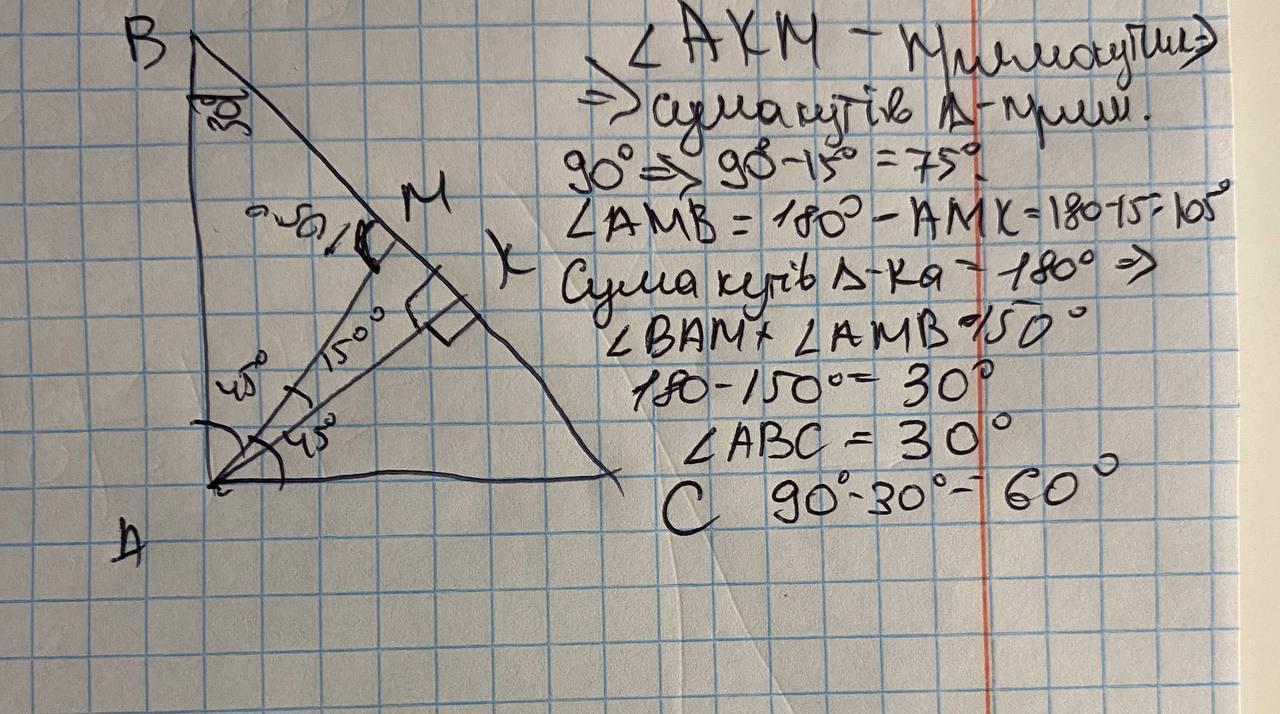 B
30°
M
K
105°
15°
45°
45°
A
C
∠AKM - прямокутник ⇒
⇒ сума кутів Δ-прям.
90° ⇒ 90°-15° = 75°
∠AMB = 180° - AMK = 180-15 = 105°
Сума кутів Δ-ка = 180° ⇒
∠BAM + ∠AMB = 150°
180-150° = 30°
∠ABC = 30°
90°-30° = 60°